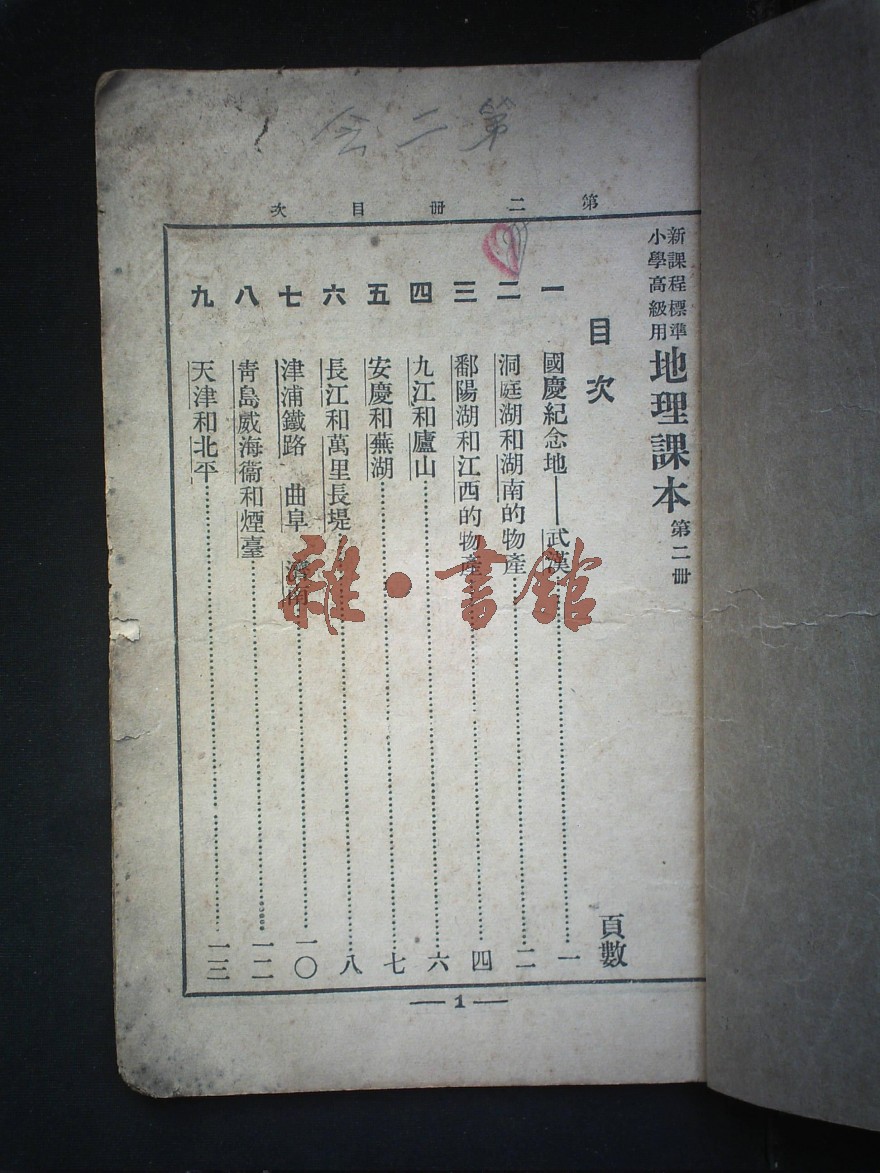 第二
第二冊目次
新課程標準
小學高級用
地理課本 第二冊
目次
頁數
一 國慶紀念地——武漢 一
二 洞庭湖和湖南的物產 二
三 鄱陽湖和江西的物產 四
四 九江和廬山 六
五 安慶和蕪湖 七
六 長江和萬里長堤 八
七 津浦鐵路 曲阜 濟南 一〇
八 青島威海衞和煙臺 一二
九 天津和北平 一三
—1—
雜·書館